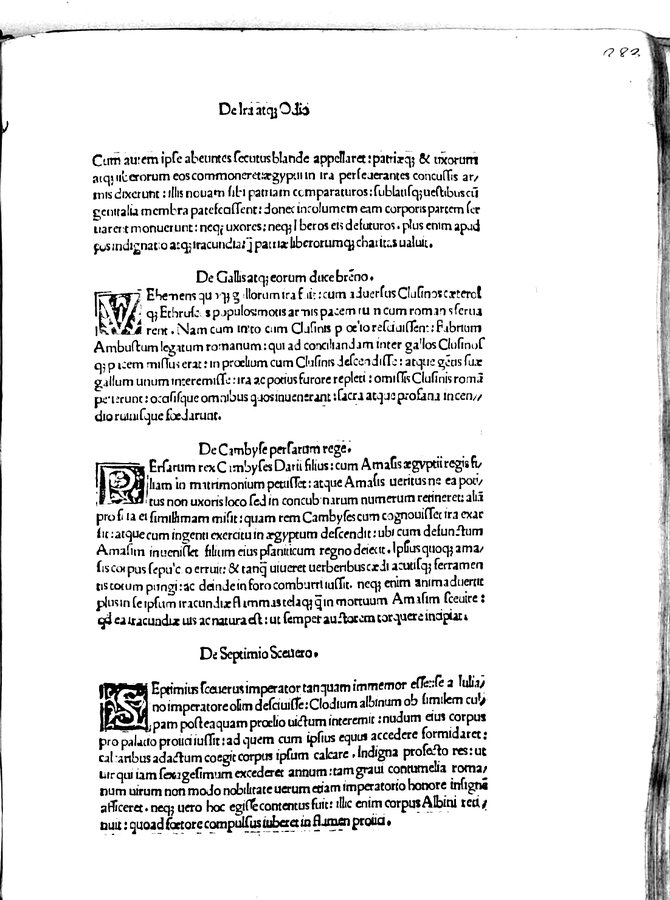 282
De Ira atq; Odio
Cum autem ipse abeuntes secutus blande appellaret: patriæq; & uxorum
atq; liberorum eos commoneret: ægyptii in ira perseuerantes concussis ar/
mis dixerunt: illis nouam sibi patriam comparaturos: sublatisq; uestibus cū
genitalia membra patefecissent: donec incolumem eam corporis partem ser
uarent monuerunt: neq; uxores: neq; liberos eis defuturos. plus enim apud
eos indignatio atq; iracundia: q̄ patriæ liberorumq; charitas ualuit.
De Gallis atq; eorum duce brēno.
VEhemens quoq; gallorum ira fuit: cum aduersus Clusinos cæterosq;
q; Ethruscos populos motis armis pacem tum cum romanis serua
rent. Nam cum inito cum Clusinis prœlio resciuissent: Fabium
Ambustum legatum romanum: qui ad conciliandam inter gallos Clusinos
q; pacem missus erat: in prœlium cum Clusinis descendisse: atque gētis suæ
gallum unum interemisse: ira ac potius furore repleti: omissis Clusinis romā
petierunt: occisisque omnibus quos inuenerant: sacra atque profana incen//
dio ruinisque fœdarunt.
De Cambyse persarum rege.
PErsarum rex Cambyses Darii filius: cum Amasis ægyptii regis fi/
liam in matrimonium petiisset: atque Amasis ueritus ne ea potius
tus non uxoris loco sed in concubinarum numerum retineret: aliā
pro filia ei simillimam misit: quam rem Cambyses cum cognouisset ira exar
sit: atque cum ingenti exercitu in ægyptum descendit: ubi cum defunctum
Amasim inuenisset filium eius psaniticum regno deiecit. Ipsius quoq; ama/
sis corpus sepulcro erruit: & tanq̄ uiueret uerberibus cædi acutisq; ferramen
tis totum pungi: ac deinde in foro comburi iussit. neq; enim animaduertit
plus in se ipsum iracundiæ flammas telaq; q̄ in mortuum Amasim sæuire:
qd ea iracundiæ uis ac natura est: ut semper auctorem torquere incipiat.
De Septimio Seuero.
SEptimius seuerus imperator tanquam immemor esset se a Iulia/
no imperatore olim desciuisse: Clodium albinum ob similem cul/
pam postea quam prœlio uictum interemit: nudum eius corpus
pro palatio proiici iussit: ad quem cum ipsius equus accedere formidaret:
calcaribus adactum coegit corpus ipsum calcare. Indigna profecto res: ut
uir qui iam sexagesimum excederet annum: tam graui contumelia roma/
num uirum non modo nobilitate uerum etiam imperatorio honore insignē
afficeret. neq; uero hoc egisse contentus fuit: illic enim corpus Albini reti/
nuit: quoad fœtore compulsus iuberet in flumen proiici.